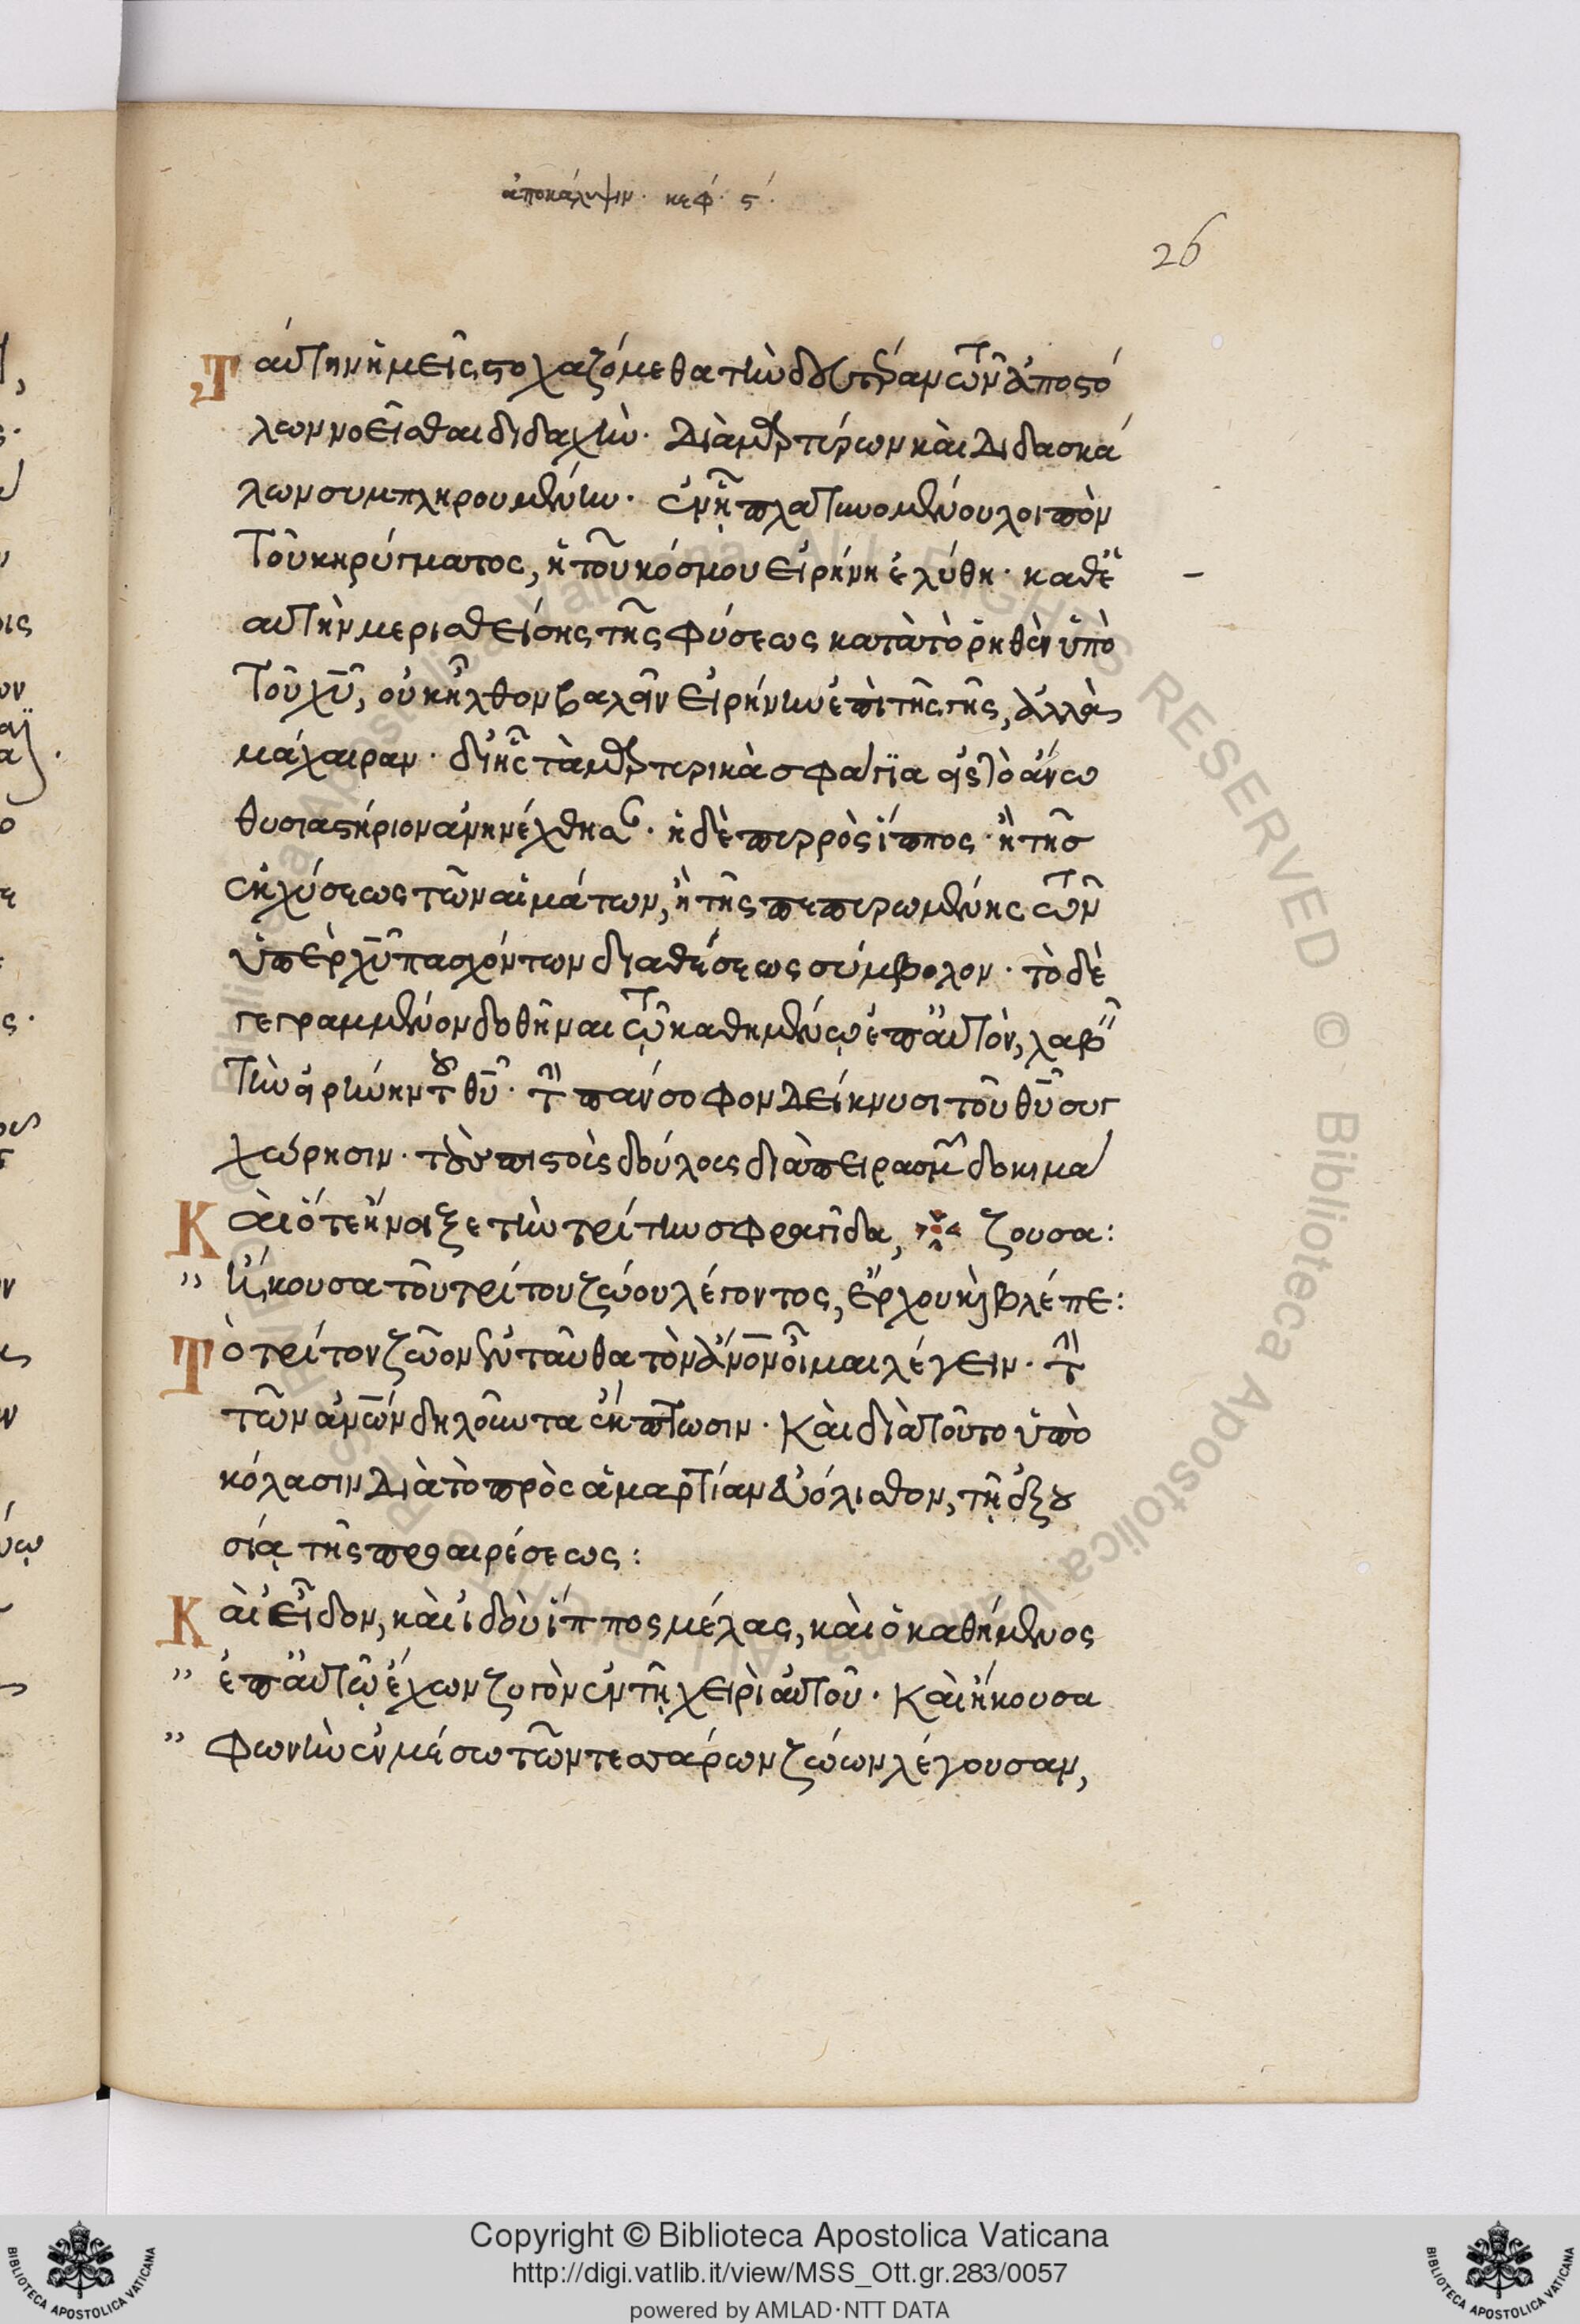 ἀποκάλυψιν· κεφ· ς·
26
Ταύτην ἡμεῖς στοχαζόμεθα τὴν δευτέραν τῶν ἀποστό
λων νοεῖσθαι διδαχὴν· διὰ μαρτύρων καὶ διδασκά
λων συμπληρουμένην· ἐν ᾗ πλατυνομένου λοιπὸν
τοῦ κηρύγματος, ἡ τοῦ κόσμου εἰρήνη ἐλύθη· καθ' ἑ
αυτὴν μερισθείσης τῆς φύσεως κατὰ τὸ ῥηθὲν ὑπὸ
τοῦ χυ, οὐκ ἦλθον βαλεῖν εἰρήνην ἐπὶ τῆς γῆς, ἀλλὰ
μάχαιραν· δι' ἧς τὰ μαρτυρικὰ σφάγϊα εἰς τὸ ἄνω
θυσιαστήριον ἀνηνέχθησαν· ἡ δὲ πυρρὸς ἵππος· ἢ τῆσ
ἐκχύσεως τῶν αἱμάτων, ἢ τῆς πεπυρωμένης τῶν
ὑπὲρ χυ πασχόντων διαθέσεως σύμβολον· τὸ δὲ
γεγραμμένον δοθῆναι τῷ καθημένῳ ἐπ' αὐτὸν, λαβεῖν
τὴν εἰρήνην τοῦ θυ· τὴν πάνσοφον δείκνυσι τοῦ θυ συγ
χώρησιν· τοὺς πιστοὺς δούλους διὰ πειρασμῶν δοκιμά
Καὶ ὅτε ἤνοιξε τὴν τρίτην σφραγῖδα, ζουσα:
" ἤκουσα τοῦ τρίτου ζώου λέγοντος, ἔρχου κὶ βλέπε:
Τὸ τρίτον ζῶον ἐνταῦθα τὸν ἄνον οἶμαι λέγειν· τὴν
τῶν ἀνων δηλοῦντα ἔκπτωσιν· καὶ διὰ τοῦτο ὑπὸ
κόλασιν διὰ τὸ πρὸς ἁμαρτίαν εὐόλισθον, τῇ ἐξου
σίᾳ τῆς προαιρέσεως:
Καὶ εἶδον, καὶ ἰδοὺ ἵππος μέλας, καὶ ὁ καθήμενος
" ἐπ' αὐτῷ ἔχων ζυγὸν ἐν τῇ χειρὶ αὐτοῦ· καὶ ἤκουσα
" φωνὴν ἐν μέσω τῶν τεσσάρων ζώων λέγουσαν,
Copyright © Biblioteca Apostolica Vaticana
http://digi.vatlib.it/view/MSS_Ott.gr.283/0057
powered by AMLAD·NTT DATA